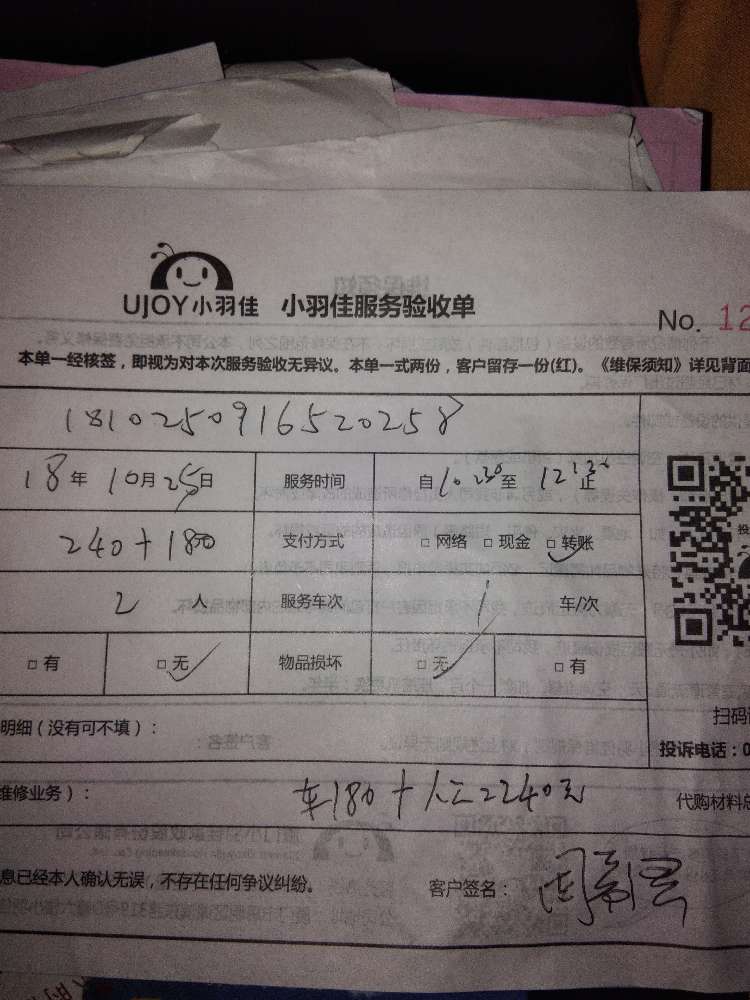 UJOY小羽佳 小羽佳服务验收单
No. 12
本单一经核签，即视为对本次服务验收无异议。本单一式两份，客户留存一份(红)。《维保须知》详见背面
1810250916520258
18年 10月25日 服务时间 自10:30至 12:30止
240+180 支付方式 □ 网络 □ 现金 □ 转账
2 人 服务车次 1 车/次
□ 有 □ 无 物品损坏 □ 无 □ 有
明细（没有可不填）：
扫码
投诉电话：0
维修业务）： 车180 + 人工240元 代购材料总
息已经本人确认无误，不存在任何争议纠纷。 客户签名：